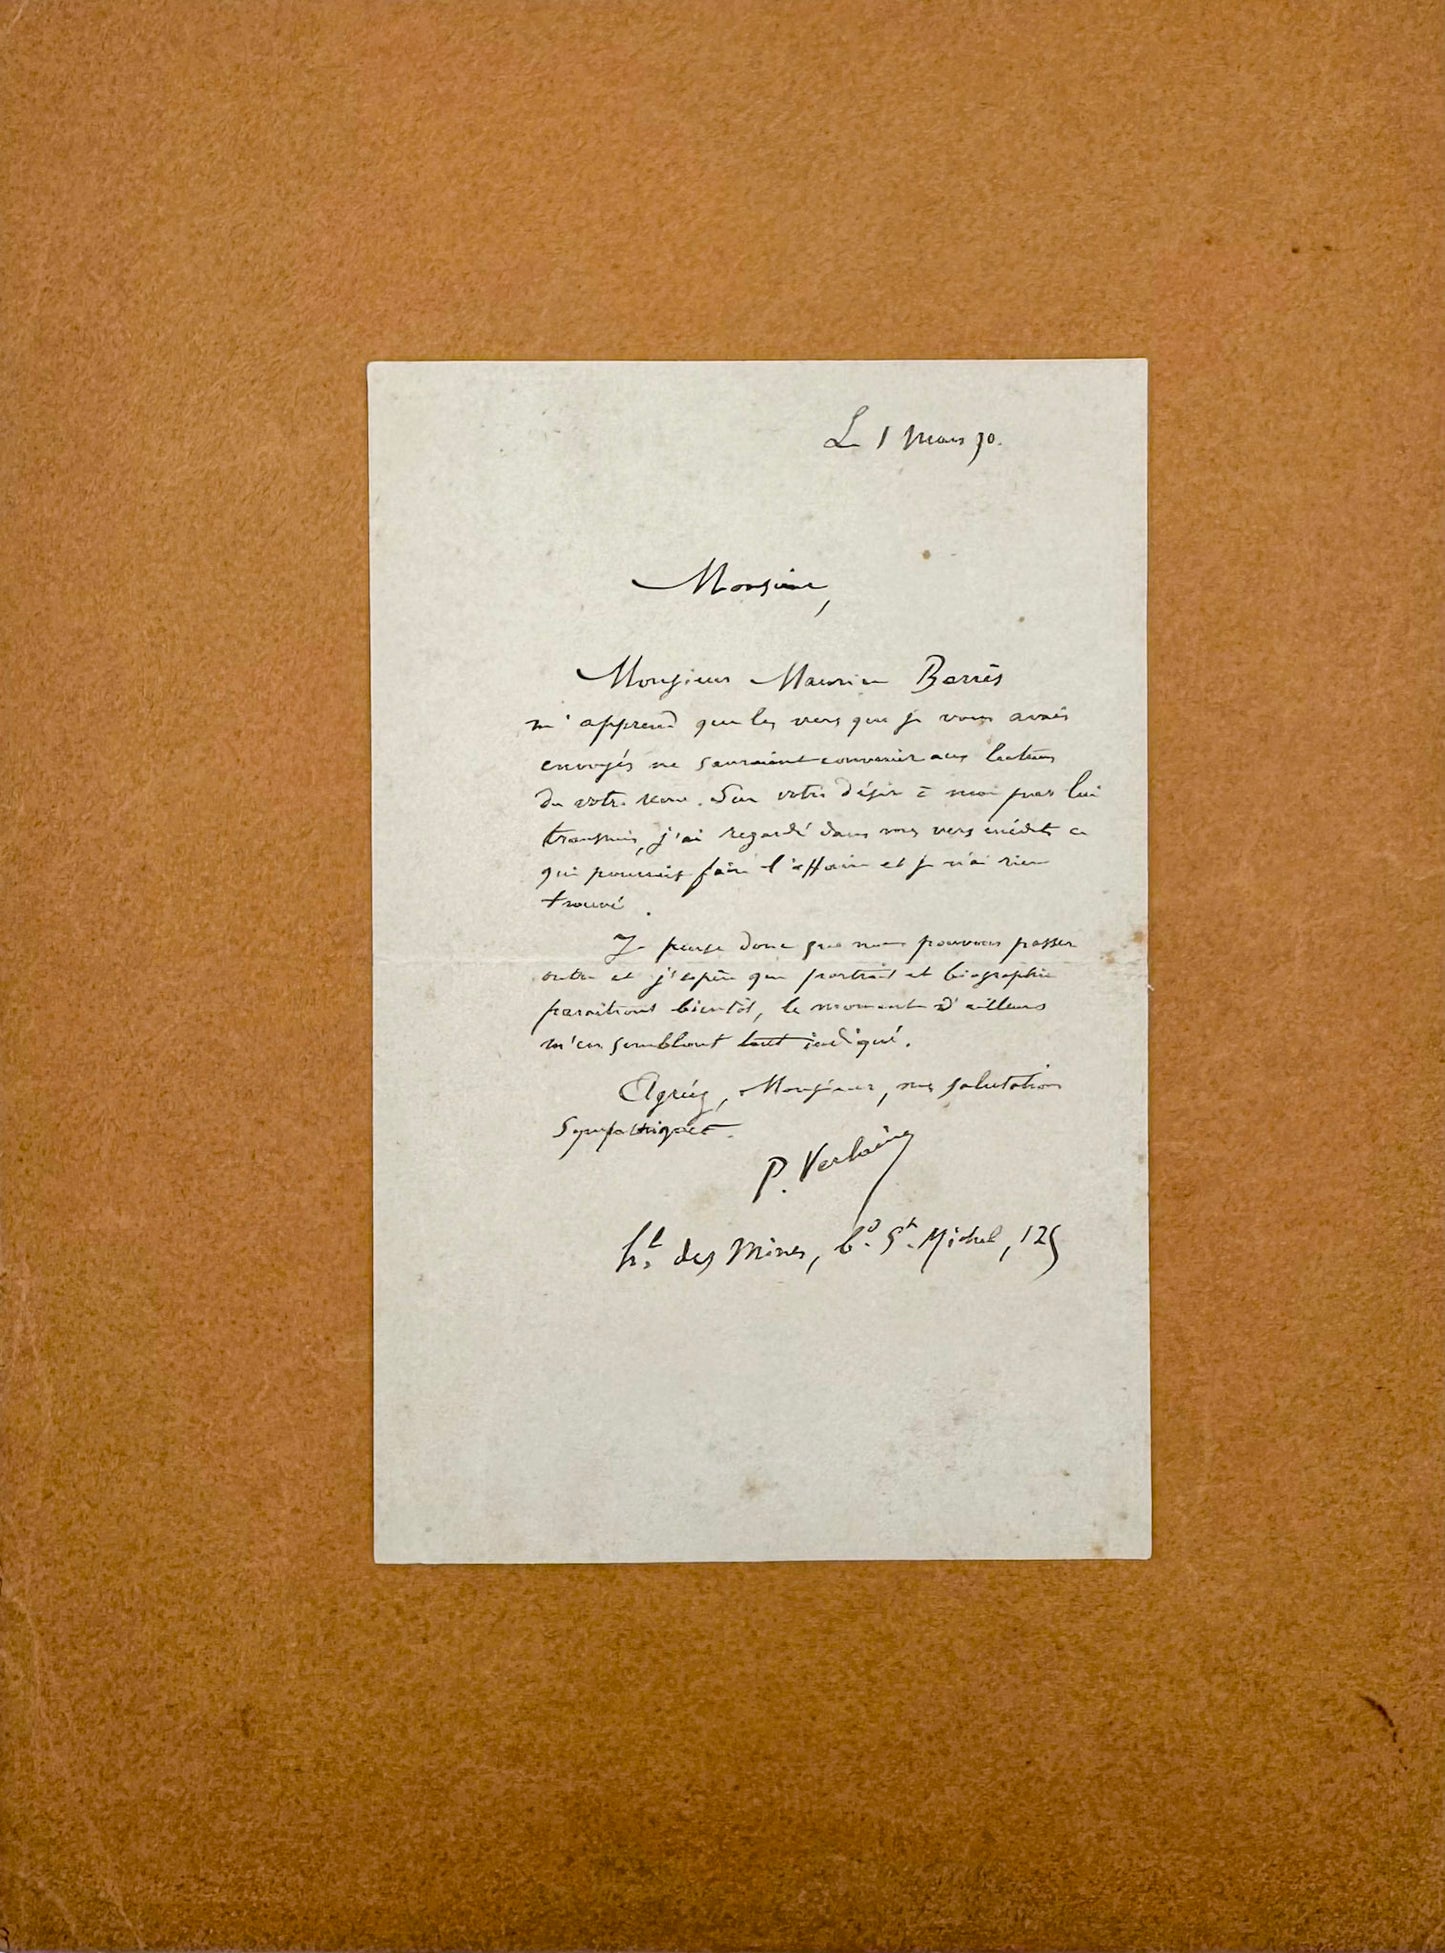 Le 1 Mars 90.
Monsieur,
Monsieur Maurice Barrès
m'apprend que les vers que je vous avais
envoyés ne sauraient convenir aux lecteurs
de votre revue. Sur votre désir à moi par lui
transmis, j'ai regardé dans mes vers inédits ce
qui pourrait faire l'affaire et je n'ai rien
trouvé.
Je pense donc que nous pouvons passer
outre et j'espère que portrait et biographie
paraîtront bientôt, le moment d'ailleurs
m'en semblant tout indiqué.
Agréez, Monsieur, mes salutations
sympathiques.
P. Verlaine
hl. des Mines, bd. St. Michel, 125